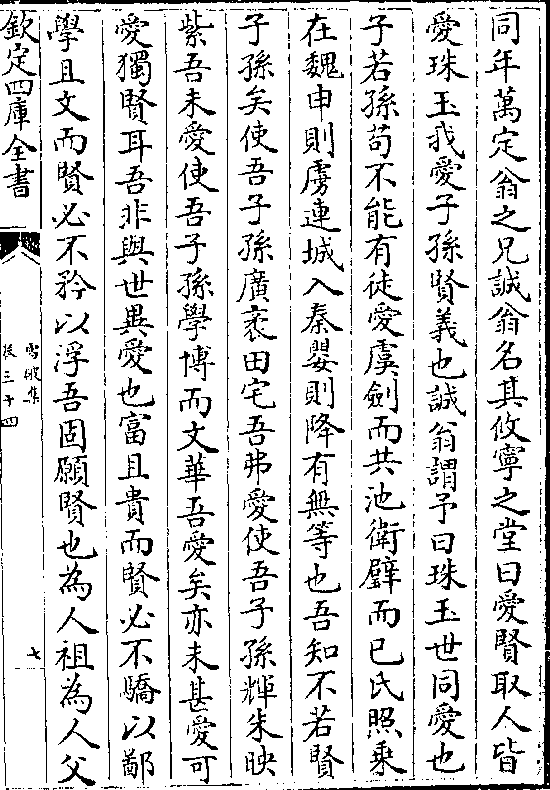 同年萬定翁之兄誠翁名其攸寧之堂曰愛賢取人皆
愛珠玉我愛子孫賢義也誠翁謂予曰珠玉世同愛也
子若孫苟不能有徒愛虞劍而共池衛璧而已氏照乗
在魏申則虜連城入秦嬰則降有無等也吾知不若賢
子孫矣使吾子孫廣袤田宅吾弗愛使吾子孫輝朱映
紫吾未愛使吾子孫學博而文華吾愛矣亦未甚愛可
愛獨賢耳吾非與世異愛也富且貴而賢必不驕以鄙
學且文而賢必不矜以浮吾固願賢也為人祖為人父
欽定四庫全書
雪坡集
卷三十四
七